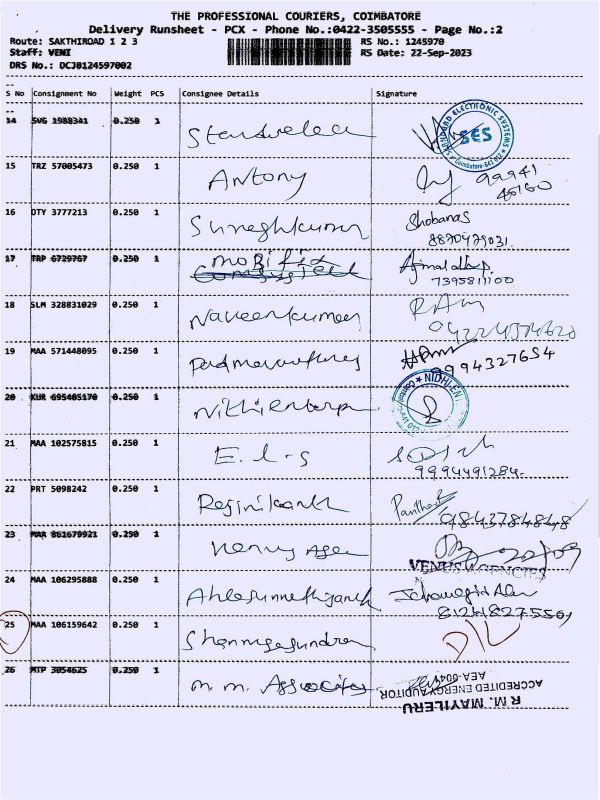 THE PROFESSIONAL COURIERS, COIMBATORE
Delivery Runsheet - PCX - Phone No.:0422-3505555 - Page No.:2
Route: SAKTHIROAD 1 2 3 RS No.: 1245970
Staff: VENI RS Date: 22-Sep-2023
DRS No.: DCJB124597002
S No Consignment No Weight PCS Consignee Details Signature
14 SVG 1988341 0.250 1
STANDARD ELECTRONIC SYSTEMS
SES
Coimbatore-641 012
15 TRZ 57005473 0.250 1 Antony 99941
16 DTY 3777213 0.250 1 Sureshkumar Shobanas
8870479031
17 TRP 6729767 0.250 1 mobifix
7395811100
18 SLM 328831029 0.250 1 Naveenkumar RAM
04224374620
19 MAA 571448095 0.250 1
9994327654
20 KUR 695405170 0.250 1 Nithienterp
NIDHI ENT
21 MAA 102575815 0.250 1 E.l-s
9994491284
22 PRT 5098242 0.250 1 Rejinikanth
9843784848
23 MAA 861679921 0.250 1 Venus Agen
VENUS AGENCIES
24 MAA 106295888 0.250 1
8124827556
25 MAA 106159642 0.250 1 Shanmugasundram D/L
26 MTP 3054625 0.250 1 m.m. Associates
R.M. MAYILERU
ACCREDITED ENERGY AUDITOR